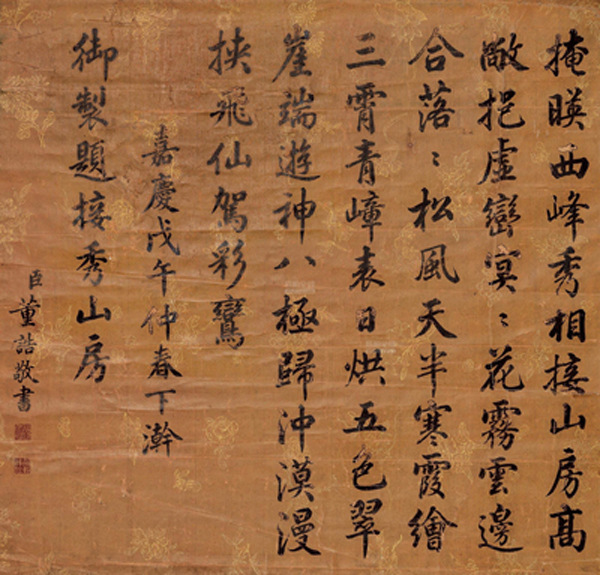 掩暎西峰秀相接山房髙
敞挹虛巒㝠〻花霧雲邊
合落〻松風天半寒霞繪
三霄青嶂表日烘五色翠
崖端遊神八極歸沖漠漫
挾飛仙駕彩鸞
嘉慶戊午仲春下澣
御製題接秀山房
臣董誥敬書